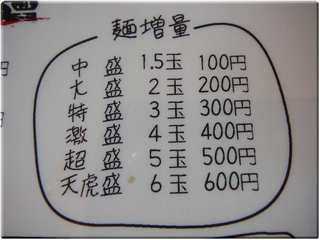 麺増量
中盛 1.5玉 100円
大盛 2玉 200円
特盛 3玉 300円
激盛 4玉 400円
超盛 5玉 500円
天虎盛 6玉 600円
円